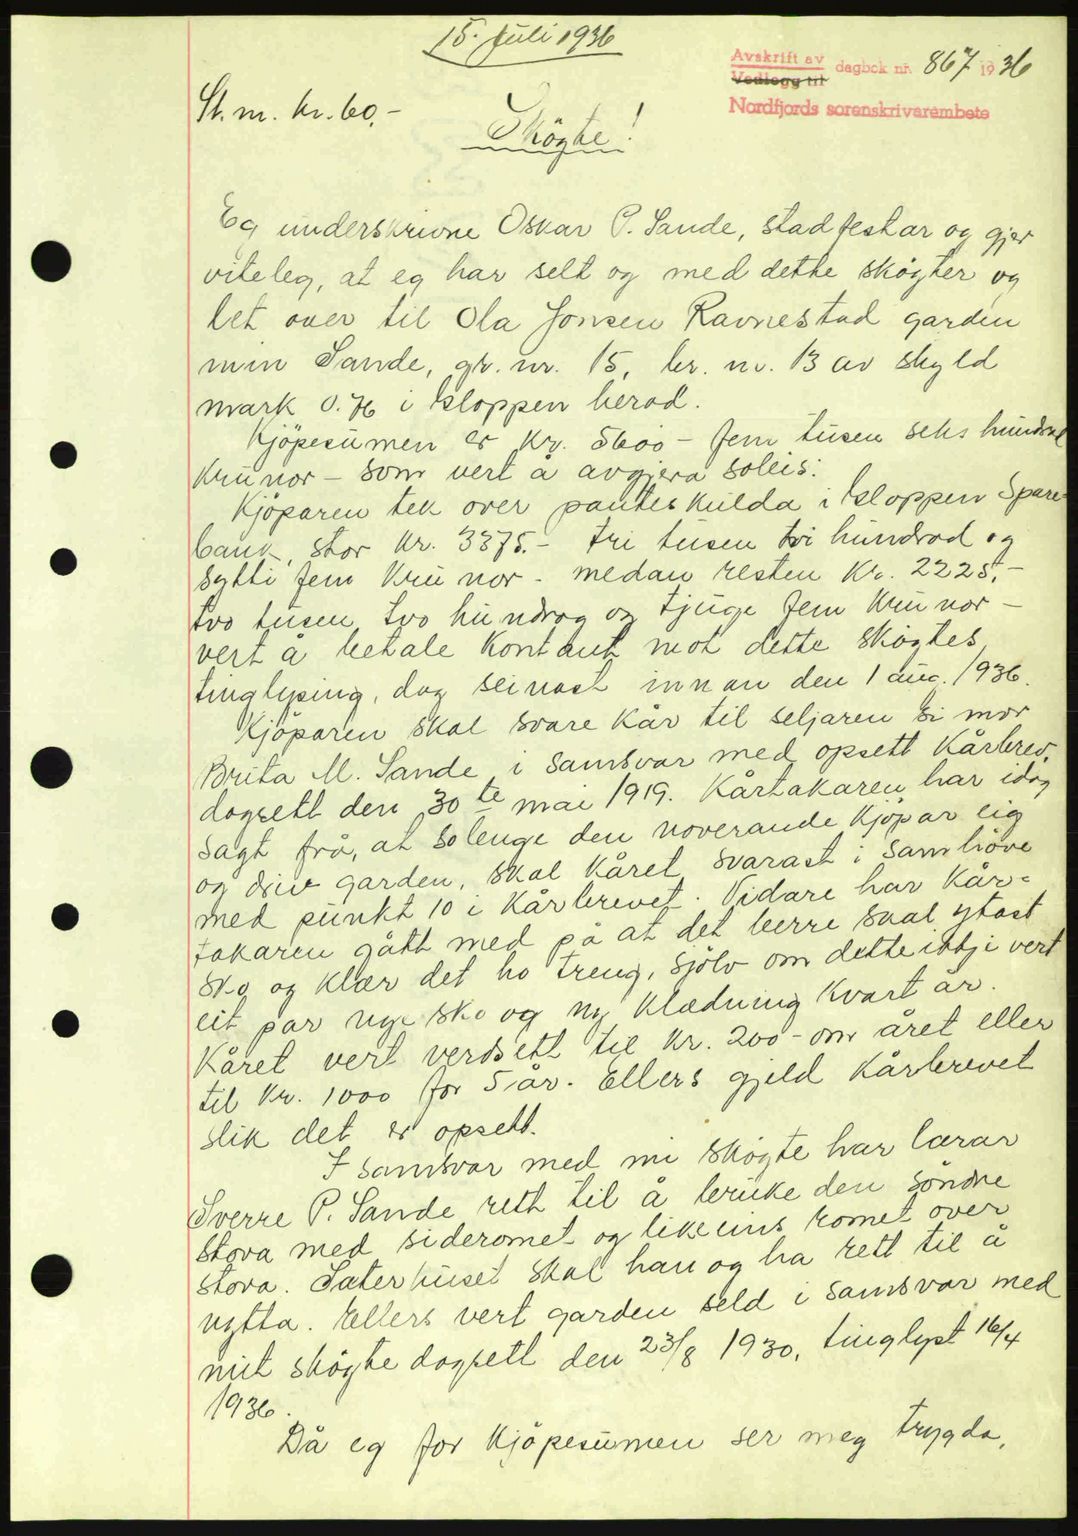 15. juli 1936
Avskrift av
Vedlegg til
dagbok nr. 867 1936
Nordfjords sorenskrivarembete
St. m. kr. 60.-
Skögte!
Eg underskrivne Oskar P. Sande, stadfestar og gjer
viteleg, at eg har selt og med dette skøgter og
let over til Ola Jonsen Ravnestad garden
min Sande, gr. nr. 15, br. nr. 13 av skyld
mark 0.76 i Gloppen herad.
Kjöpesumen er kr. 5600 - fem tusen seks hundrad
krunor - som vert å avgjera soleis:
Kjöparen tek over panteskulda i Gloppen Spare-
bank, stor kr. 3375.- tri tusen tri hundrad og
sytti fem krunor - medan resten kr. 2225.-
tvo tusen tvo hundrag og tjuge fem krunor -
vert å betale kontant mot dette skøgtes
tinglysing, dog seinast innan den 1 aug. 1936.
Kjöparen skal svare kår til seljaren si mor
Brita M. Sande i samsvar med opsett kårbrev,
dagsett den 30te mai 1919. Kårtakaren har idag
sagt frå, at solenge den noverande kjöpar eig
og driv garden, skal kåret svarast i samhöve
med punkt 10 i kårbrevet. Vidare har kår-
takaren gått med på at det berre skal ytast
sko og klær det ho treng, sjölv om dette ikkje vert
eit par nye sko og ny klædning kvart år.
Kåret vert verdsett til kr. 200 - om året eller
til kr. 1000 for 5 år. Ellers gjeld kårbrevet
slik det er opsett.
I samsvar med mi skögte har lærar
Sverre P. Sande rett til å bruke den söndre
stova med sideromet og likeeins romet over
stova. Sæterhuset skal han og ha rett til å
nytta. Ellers vert garden seld i samsvar med
mit skøgte dagsett den 23/8 1930, tinglyst 16/4
1936.
Då eg for kjöpesumen ser meg trygda,